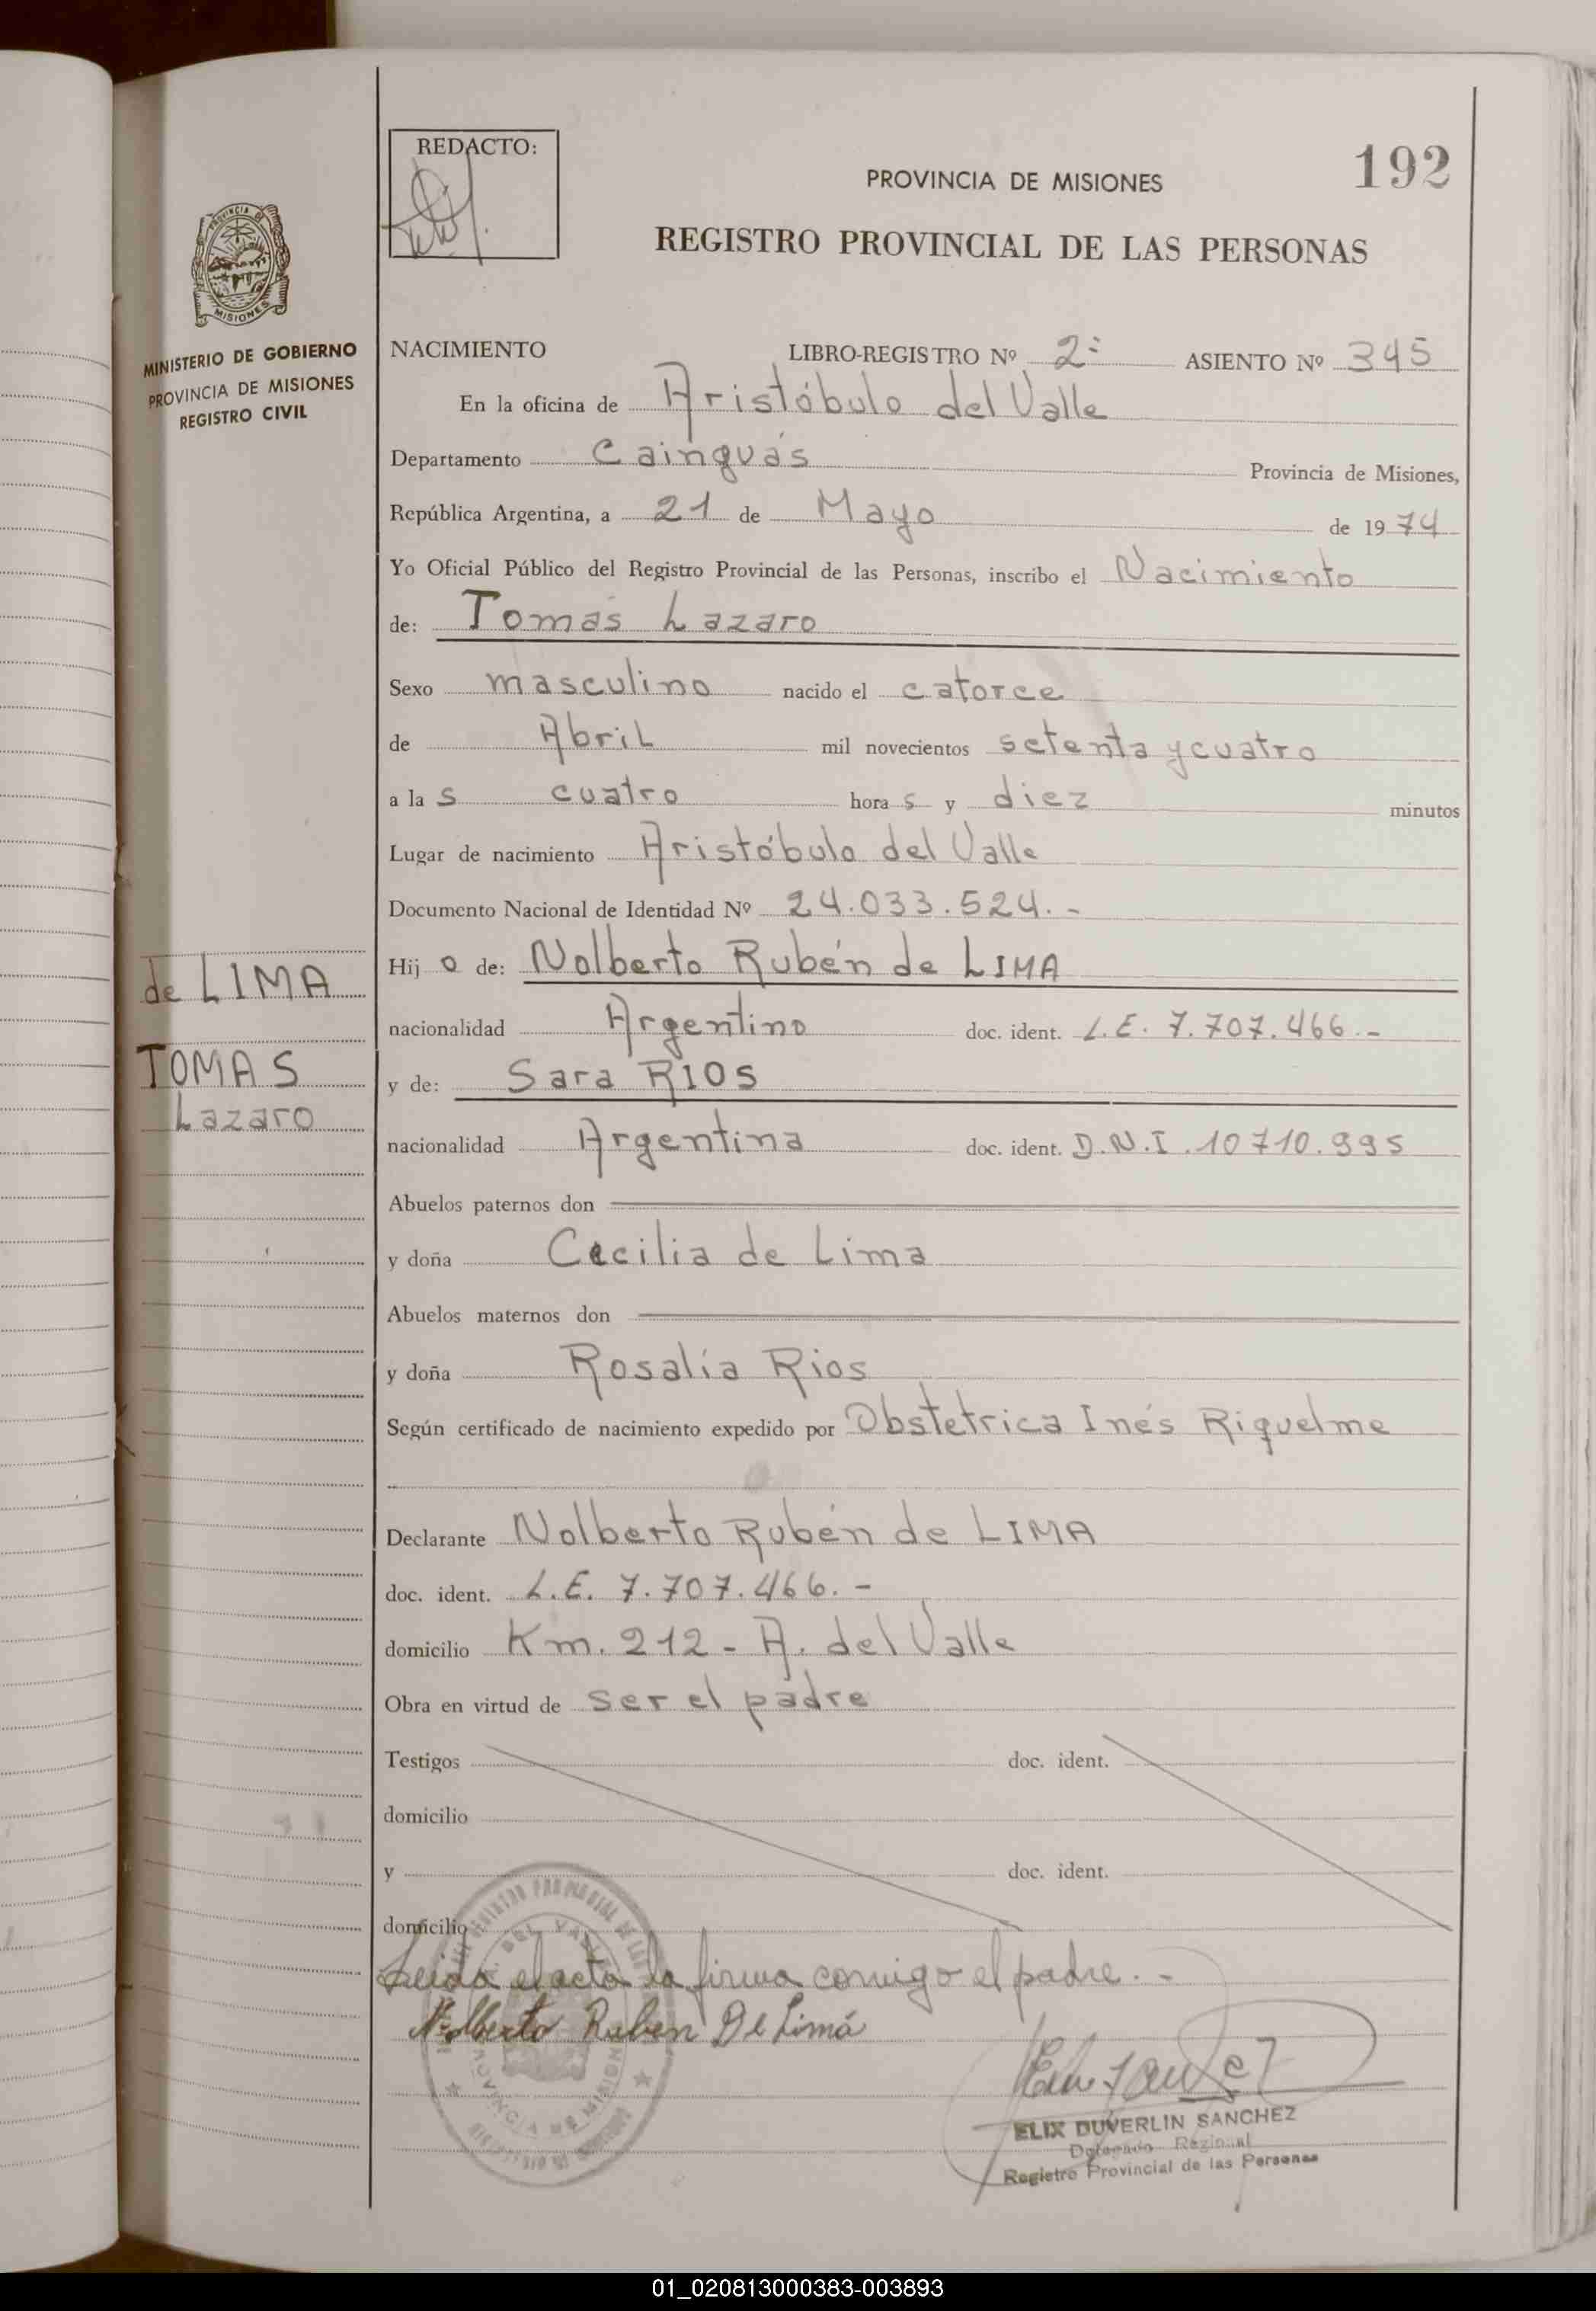 REDACTO:
192
PROVINCIA DE MISIONES
REGISTRO PROVINCIAL DE LAS PERSONAS
PROVINCIA DE
MISIONES
MINISTERIO DE GOBIERNO
PROVINCIA DE MISIONES
REGISTRO CIVIL
NACIMIENTO LIBRO-REGISTRO Nº 2º ASIENTO Nº 345
En la oficina de Aristóbulo del Valle
Departamento Cainguás Provincia de Misiones,
República Argentina, a 21 de Mayo de 1974
Yo Oficial Público del Registro Provincial de las Personas, inscribo el Nacimiento
de: Tomás Lazaro
Sexo masculino nacido el catorce
de Abril mil novecientos setenta y cuatro
a la s cuatro hora s y diez minutos
Lugar de nacimiento Aristóbulo del Valle
Documento Nacional de Identidad Nº 24.033.524.-
Hij o de: Nolberto Rubén de LIMA
de LIMA
nacionalidad Argentino doc. ident. L.E. 7.707.466.-
TOMAS
y de: Sara RIOS
Lazaro
nacionalidad Argentina doc. ident. D.N.I. 10710.995
Abuelos paternos don
y doña Cecilia de Lima
Abuelos maternos don
y doña Rosalía Rios
Según certificado de nacimiento expedido por Obstetrica Inés Riquelme
Declarante Nolberto Rubén de LIMA
doc. ident. L.E. 7.707.466.-
domicilio Km. 212 - A. del Valle
Obra en virtud de ser el padre
Testigos doc. ident.
domicilio
y doc. ident.
domicilio
Leída el acta la firma conmigo el padre.-
Nolberto Ruben De Lima
ELIX DUVERLIN SANCHEZ
Delegado Regional
Registro Provincial de las Personas
01_020813000383-003893